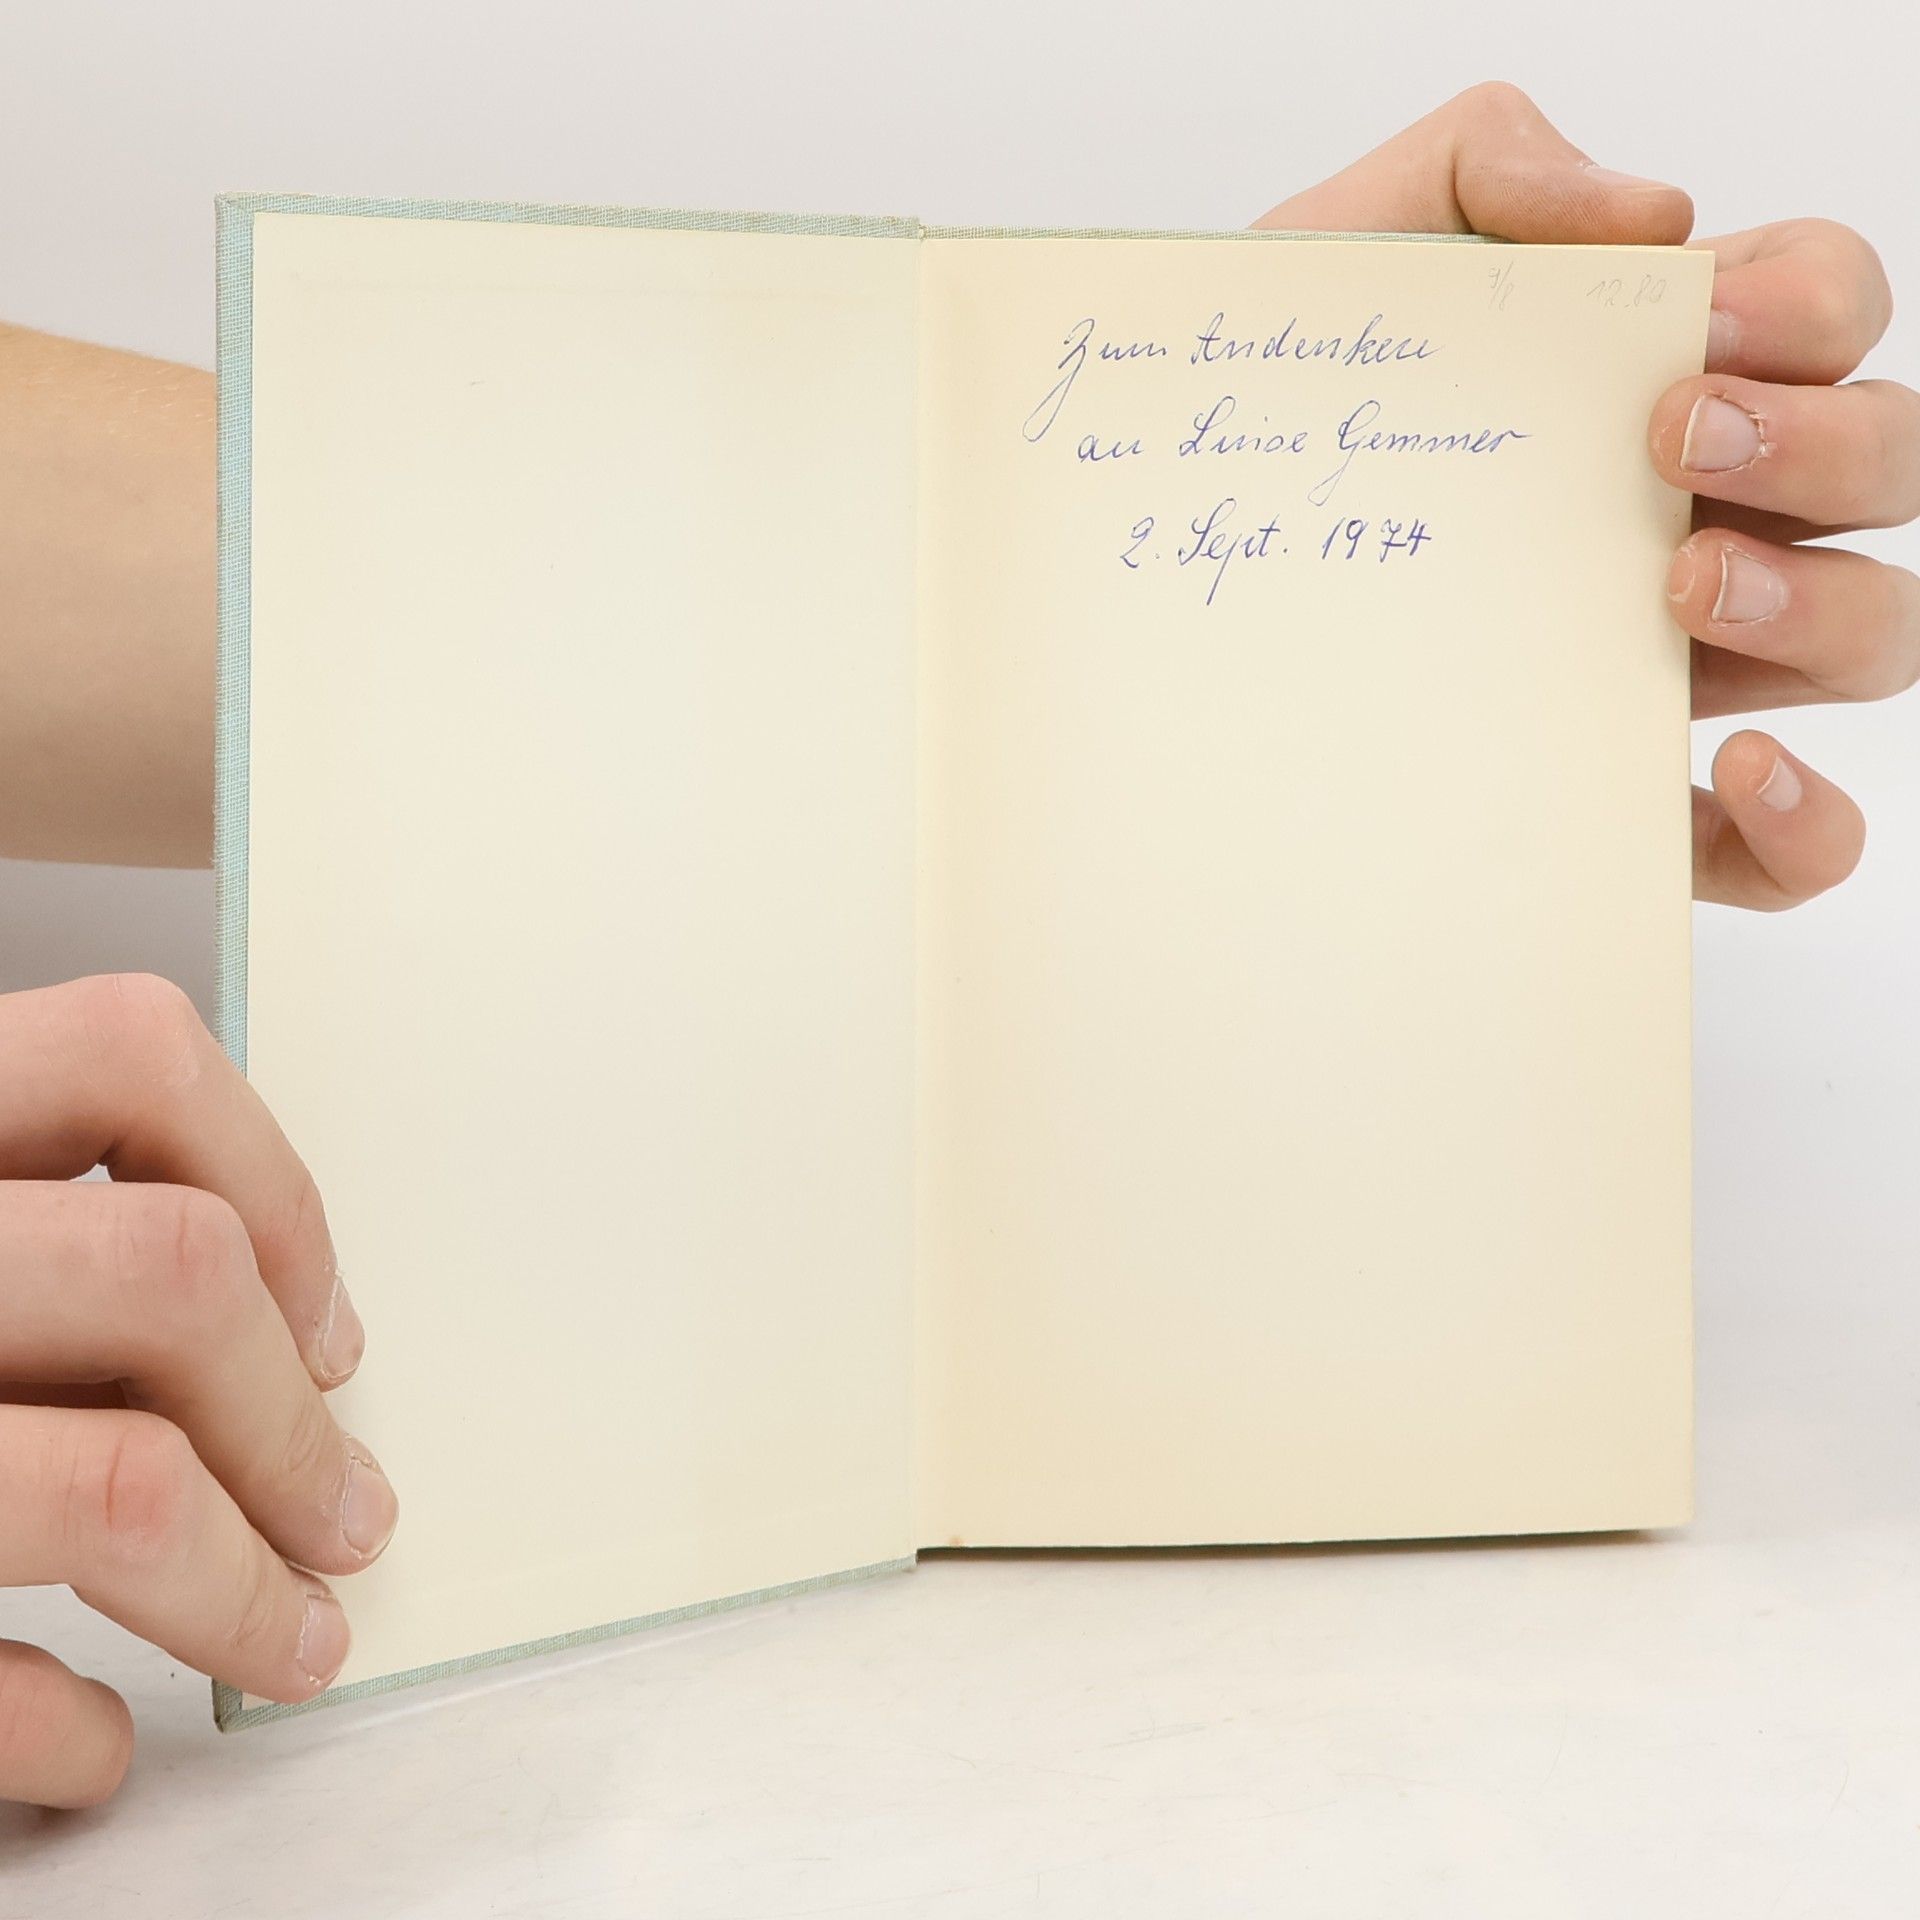 9/8 12.80
Zum Andenken
an Luise Gemmer
2. Sept. 1974